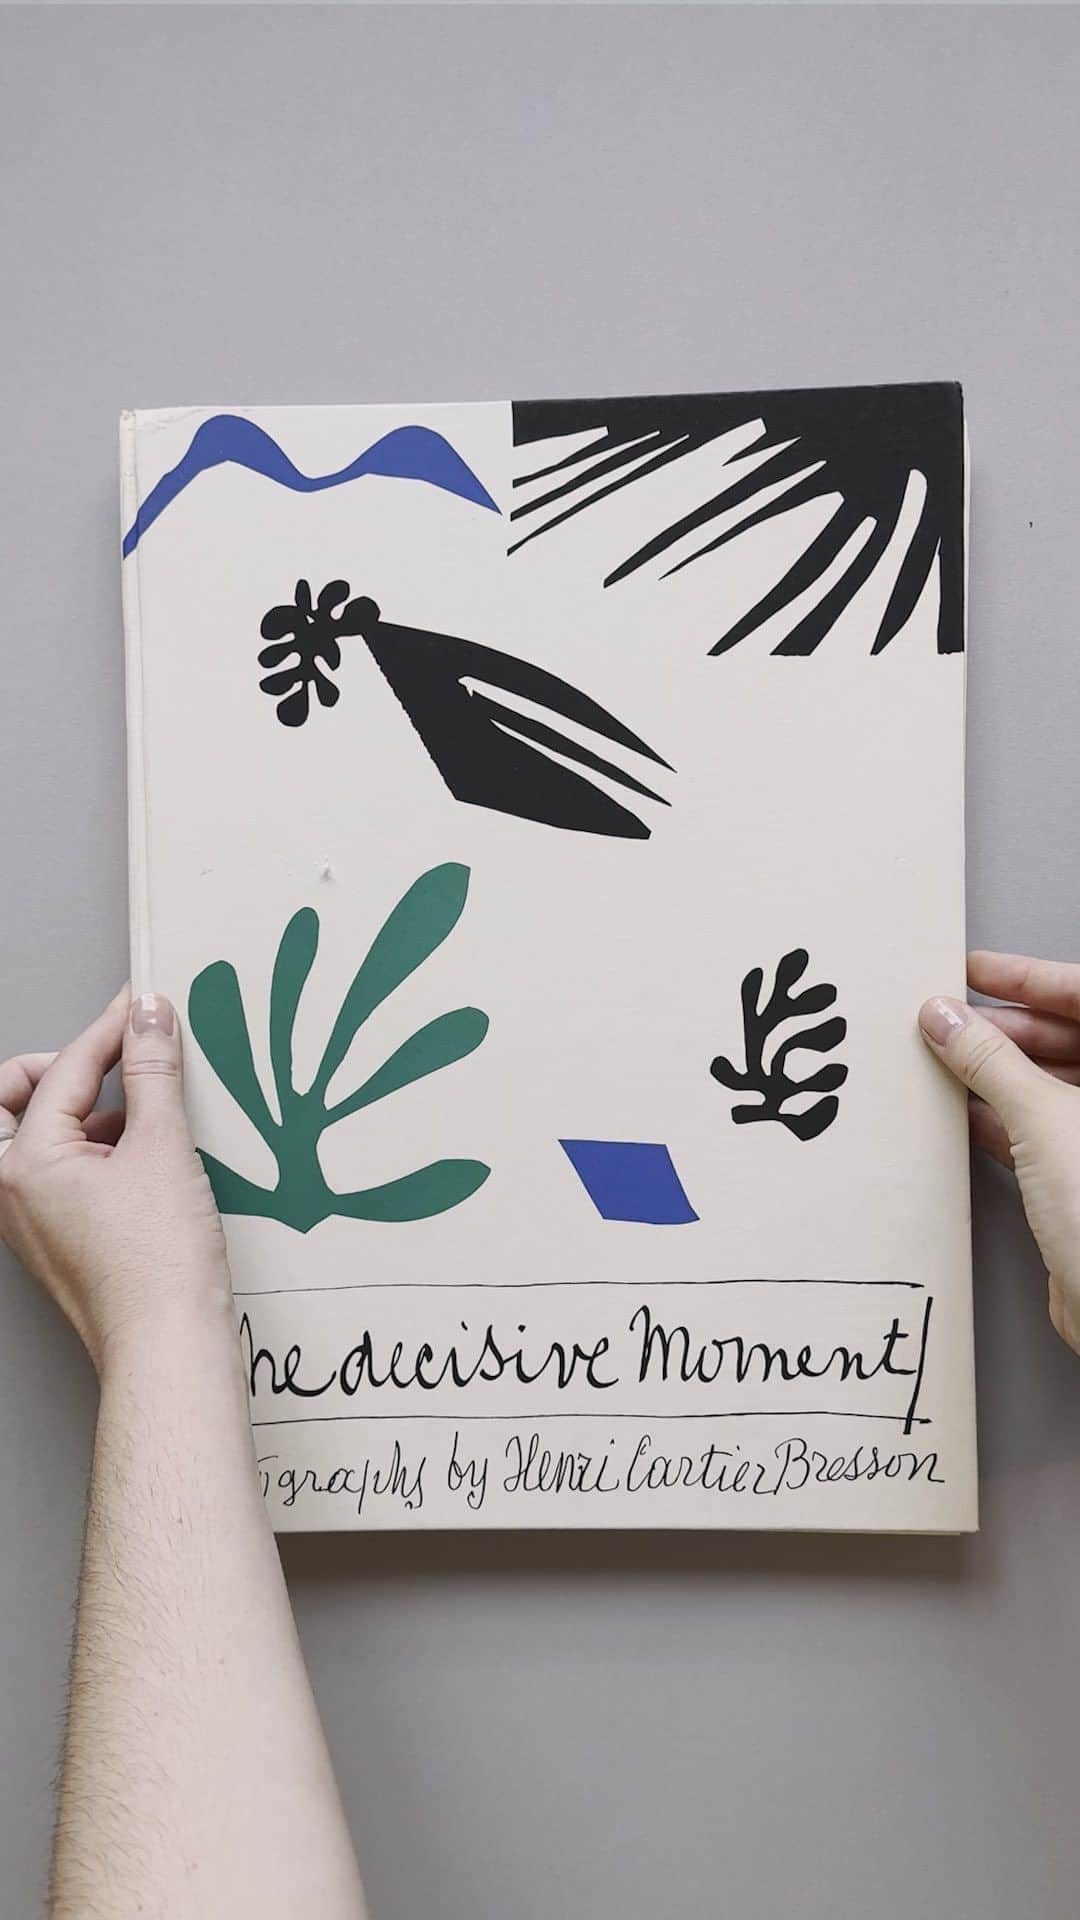 he decisive Moment
graphs by Henri Cartier Bresson